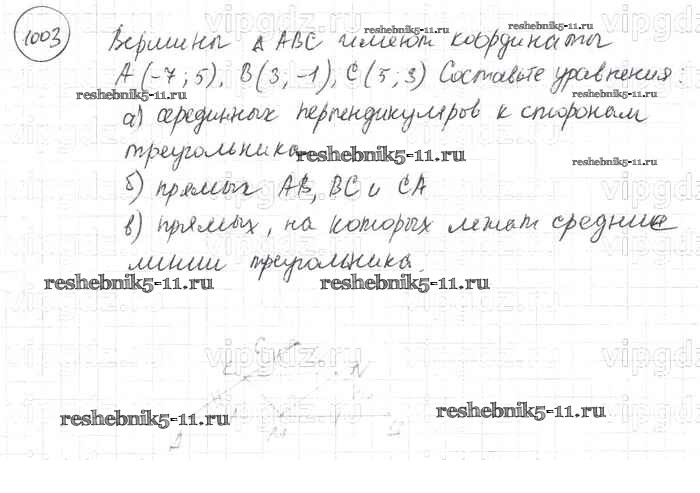 1003
Вершины △ ABC имеют координаты
A (-7; 5), B (3; -1), C (5; 3) Составьте уравнения:
а) серединных перпендикуляров к сторонам
треугольника.
б) прямых AB, BC и CA
в) прямых, на которых лежат средние
линии треугольника.
reshebnik5-11.ru
reshebnik5-11.ru
reshebnik5-11.ru
reshebnik5-11.ru
reshebnik5-11.ru
reshebnik5-11.ru
reshebnik5-11.ru
reshebnik5-11.ru
reshebnik5-11.ru
reshebnik5-11.ru
vipgdz.ru
vipgdz.ru
vipgdz.ru